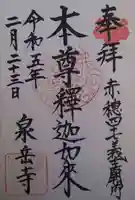 奉拝
赤穂四十七義士墓所
本尊釋迦如来
令和五年
二月二十三日
泉岳寺